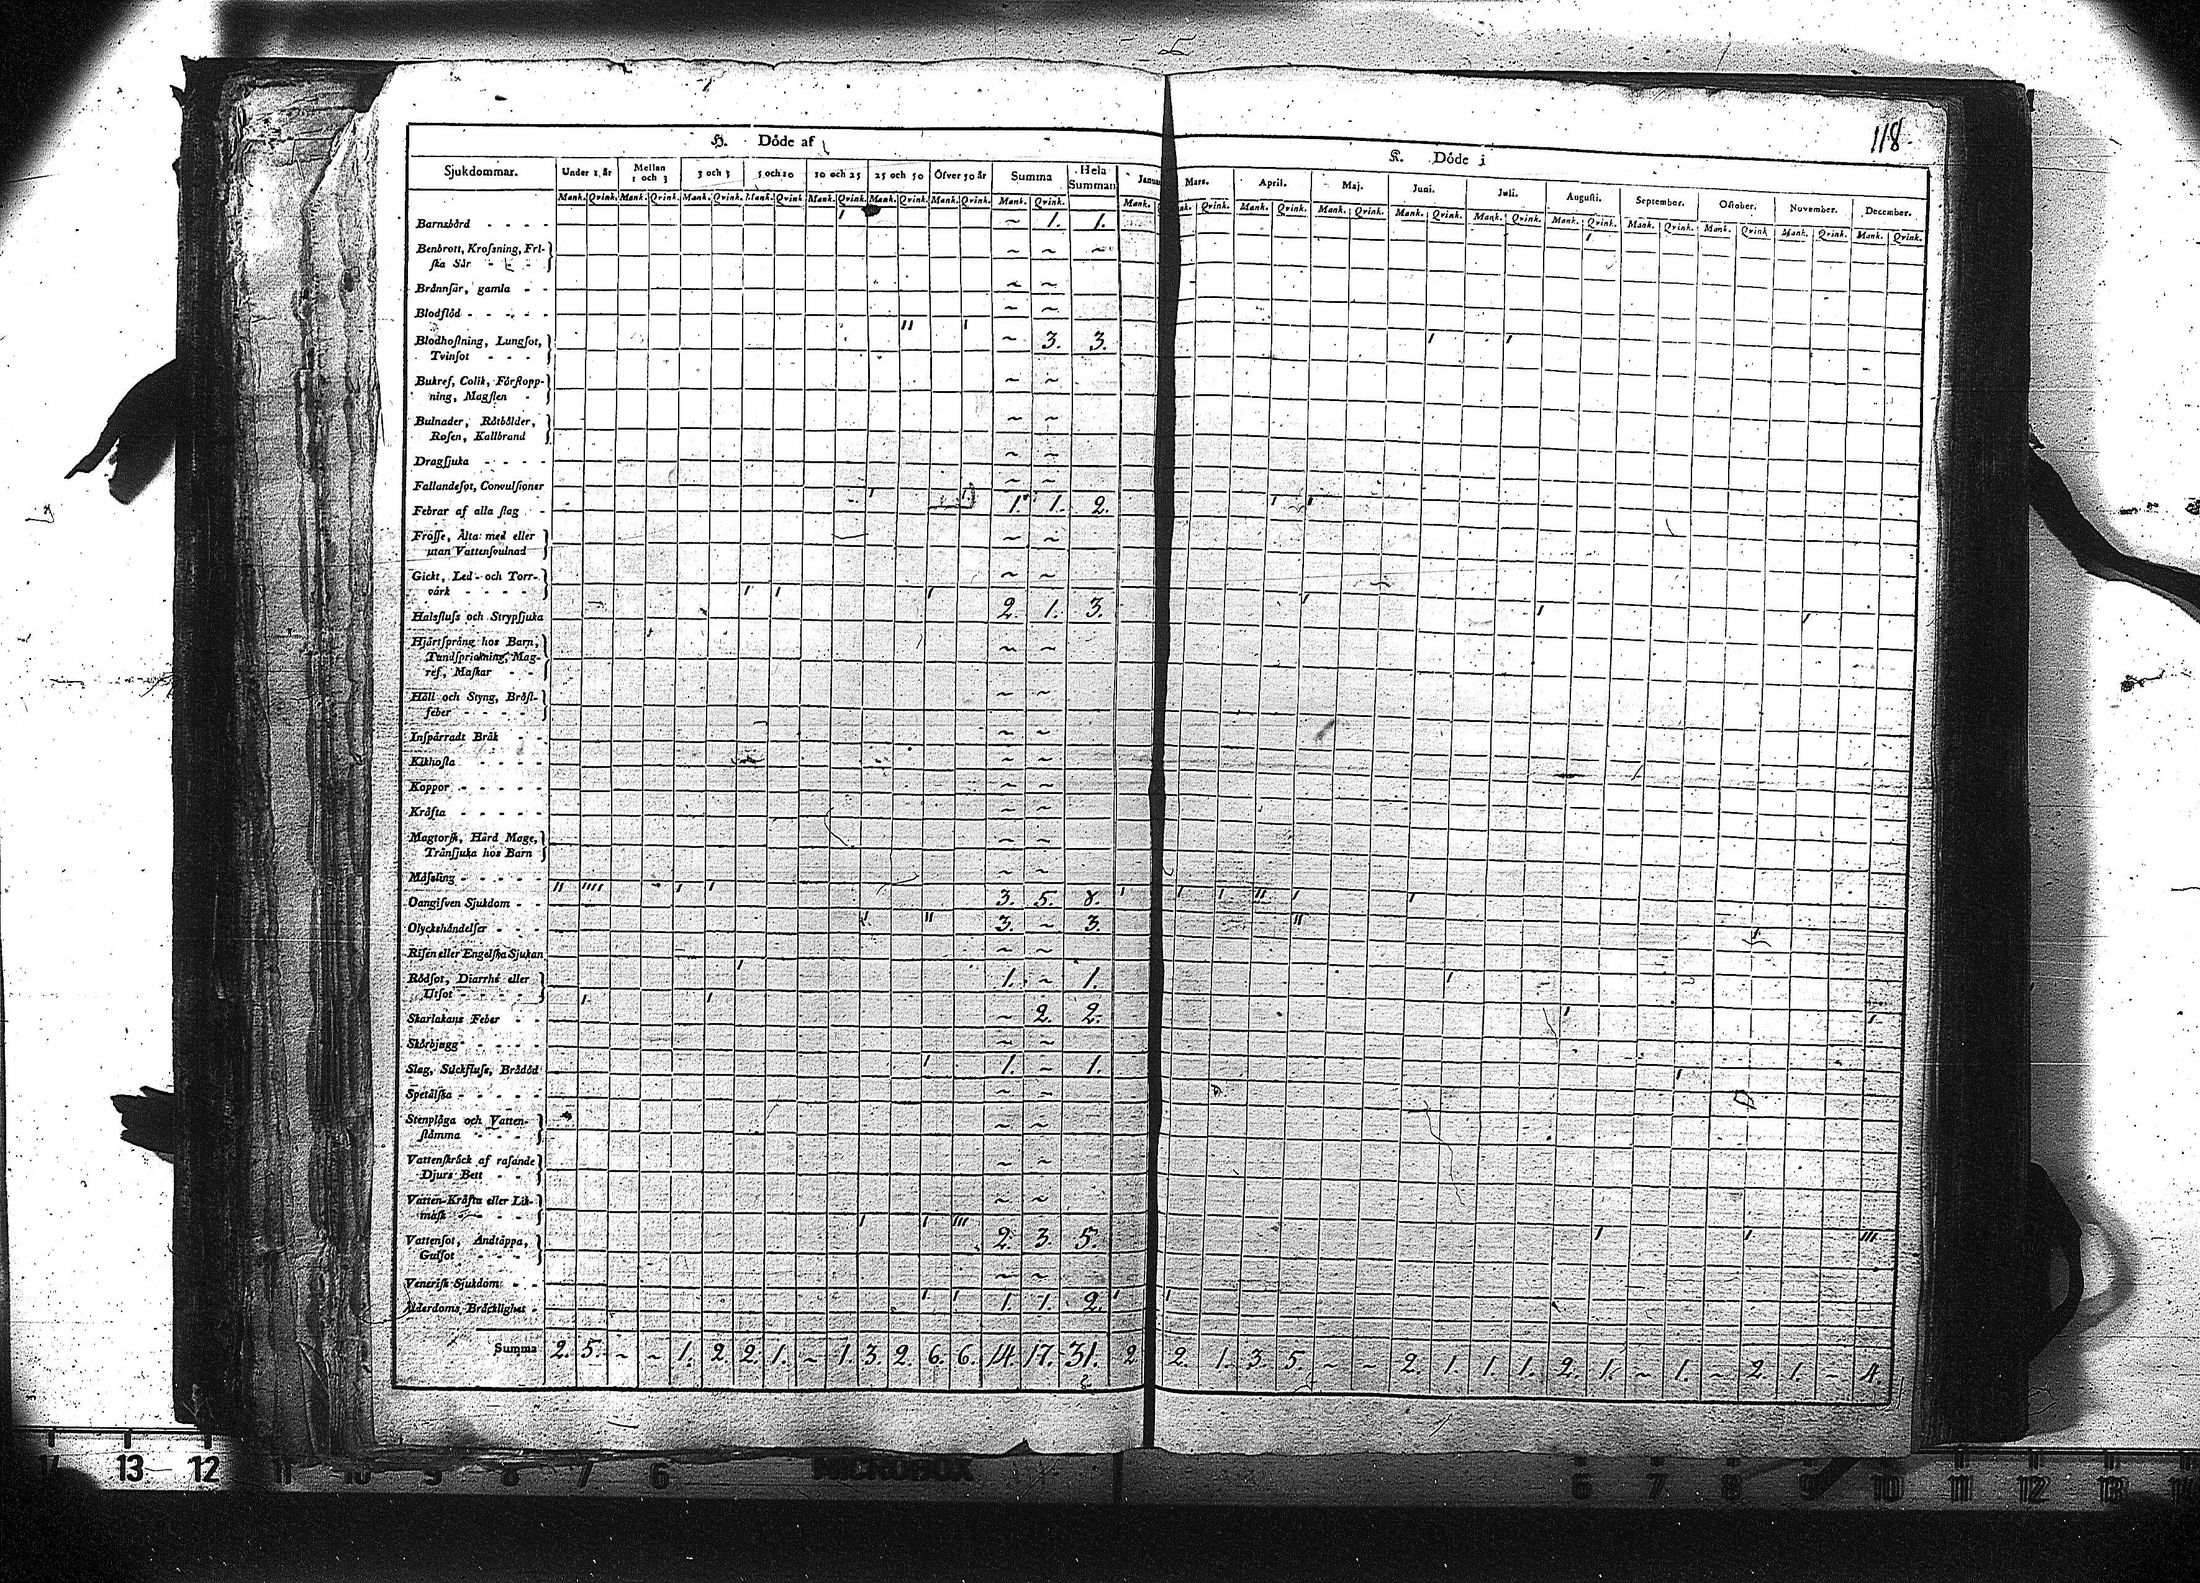 118
H. Döde af
K. Döde i
Sjukdommar. Under 1. år Mellan 1 och 3 3 och 5 5 och 10 10 och 25 25 och 50 Öfver 50 år Summa Hela Summan
Mank. Qvink. Mank. Qvink. Mank. Qvink. Mank. Qvink. Mank. Qvink. Mank. Qvink. Mank. Qvink. Mank. Qvink.
Mars. April. Maj. Juni. Juli. Augusti. September. October. November. December.
Mank. Qvink. Mank. Qvink. Mank. Qvink. Mank. Qvink. Mank. Qvink. Mank. Qvink. Mank. Qvink. Mank. Qvink. Mank. Qvink.
Barnsbörd - - - - ~ 1. 1.
Benbrott, Krossning, Fri-
ska Sår - - - ~ ~ ~
Brännsår, gamla - - ~ ~
Blodflöd - - - - - ~ ~
Blodhostning, Lungsot,
Tvinsot - - - ~ 3. 3.
Bukref, Colik, Förstopp-
ning, Magsten - ~ ~
Bulnader, Rötbölder,
Rosen, Kallbrand ~ ~
Dragsjuka - - - - ~ ~
Fallandesot, Convulsioner ~ ~
Febrar af alla slag - 1. 1. 2.
Frosse, Älta: med eller
utan Vattensvulnad ~ ~
Gickt, Led- och Torr-
värk - - - - ~ ~
Halsfluss och Strypsjuka 2. 1. 3.
Hjärtsprång hos Barn,
Tandsprickning, Mag-
ref, Maskar - - ~ ~
Håll och Styng, Bröst-
feber - - - - ~ ~
Inspärradt Bråk - - ~ ~
Kikhosta - - - - ~ ~
Koppor - - - - - ~ ~
Kräfta - - - - - ~ ~
Magtorsk, Hård Mage,
Tränsjuka hos Barn ~ ~
Mässling - - - - - ~ ~
Oangifven Sjukdom - - 3. 5. 8.
Olyckshändelser - - - 3. ~ 3.
Risen eller Engelska Sjukan ~ ~
Rödsot, Diarrhé eller
Utsot - - - - 1. ~ 1.
Skarlakans Feber - - ~ 2. 2.
Skörbjugg - - - - ~ ~
Slag, Stickfluss, Brådöd 1. ~ 1.
Spetälska - - - - - ~ ~
Stenplåga och Vatten-
stämma - - - ~ ~
Vattenskräck af rasande
Djurs Bett - - ~ ~
Vatten-Kräfta eller Lik-
mask - - - - ~ ~
Vattensot, Andtäppa,
Gulsot - - - - 2. 3. 5.
Venerisk Sjukdom - - ~ ~
Ålderdoms Bräcklighet - 1. 1. 2.
Summa 2. 5. ~ ~ 1. 2. 2. 1. ~ 1. 3. 2. 6. 6. 14. 17. 31. 2. 2. 1. 3. 5. ~ ~ 2. 1. 1. 1. 2. 1. ~ 1. ~ 2. 1. ~ 4.
13 12 11 10 9 8 7 6
MICROBOX
6 7 8 9 10 11 12 13 14